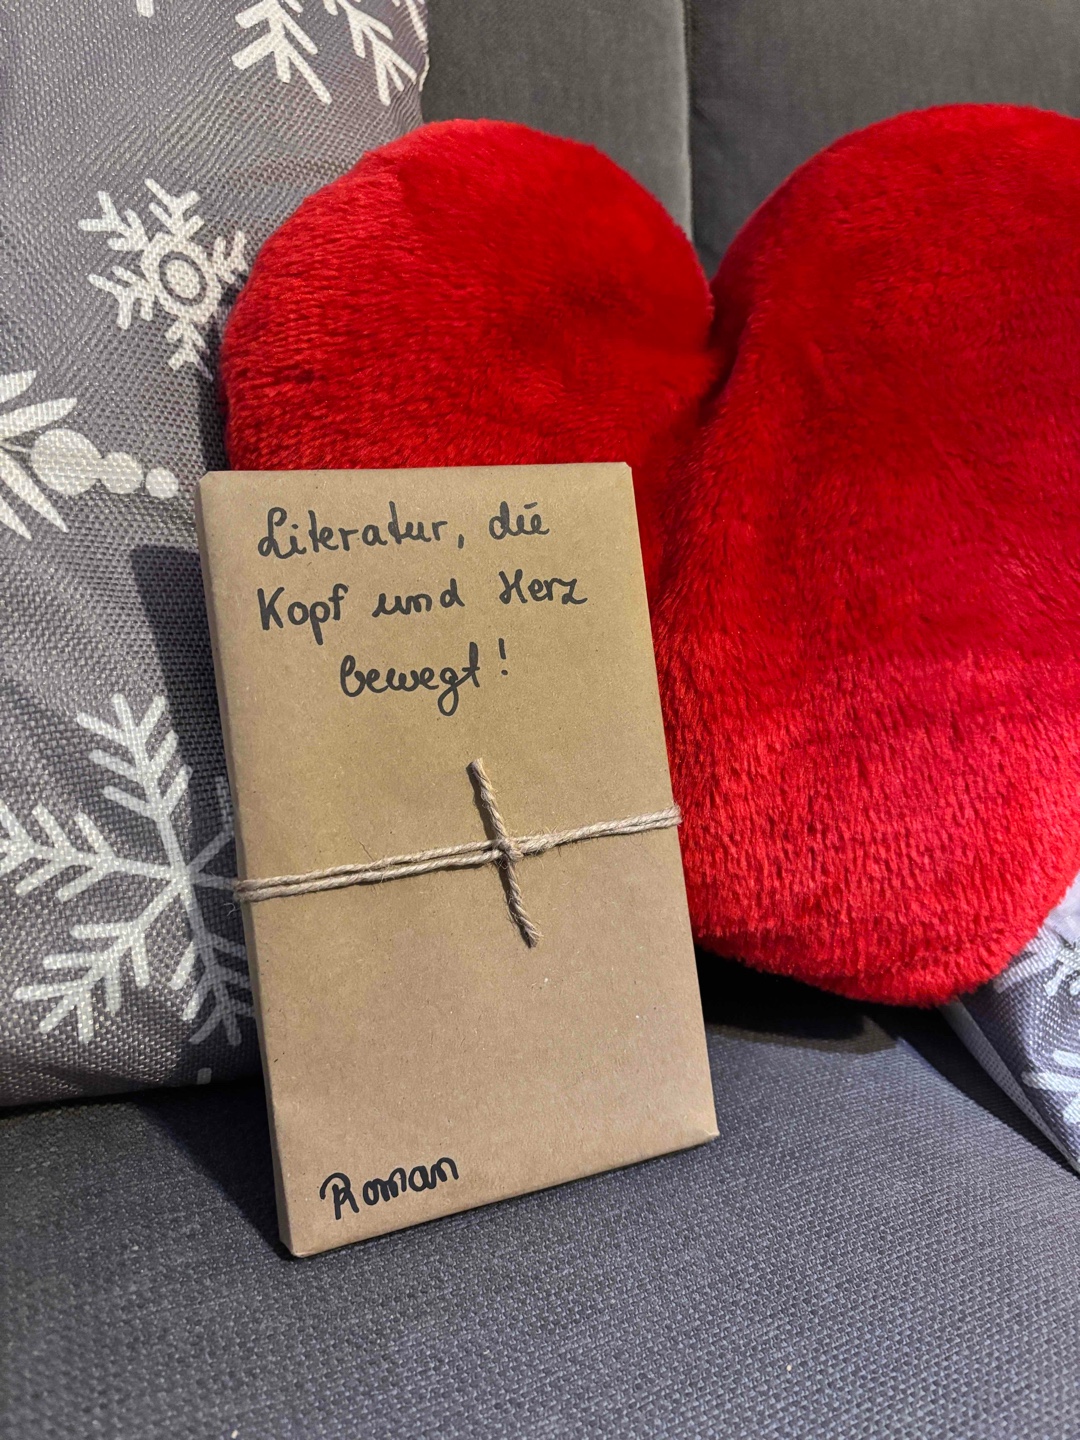 Literatur, die
Kopf und Herz
bewegt!
Roman